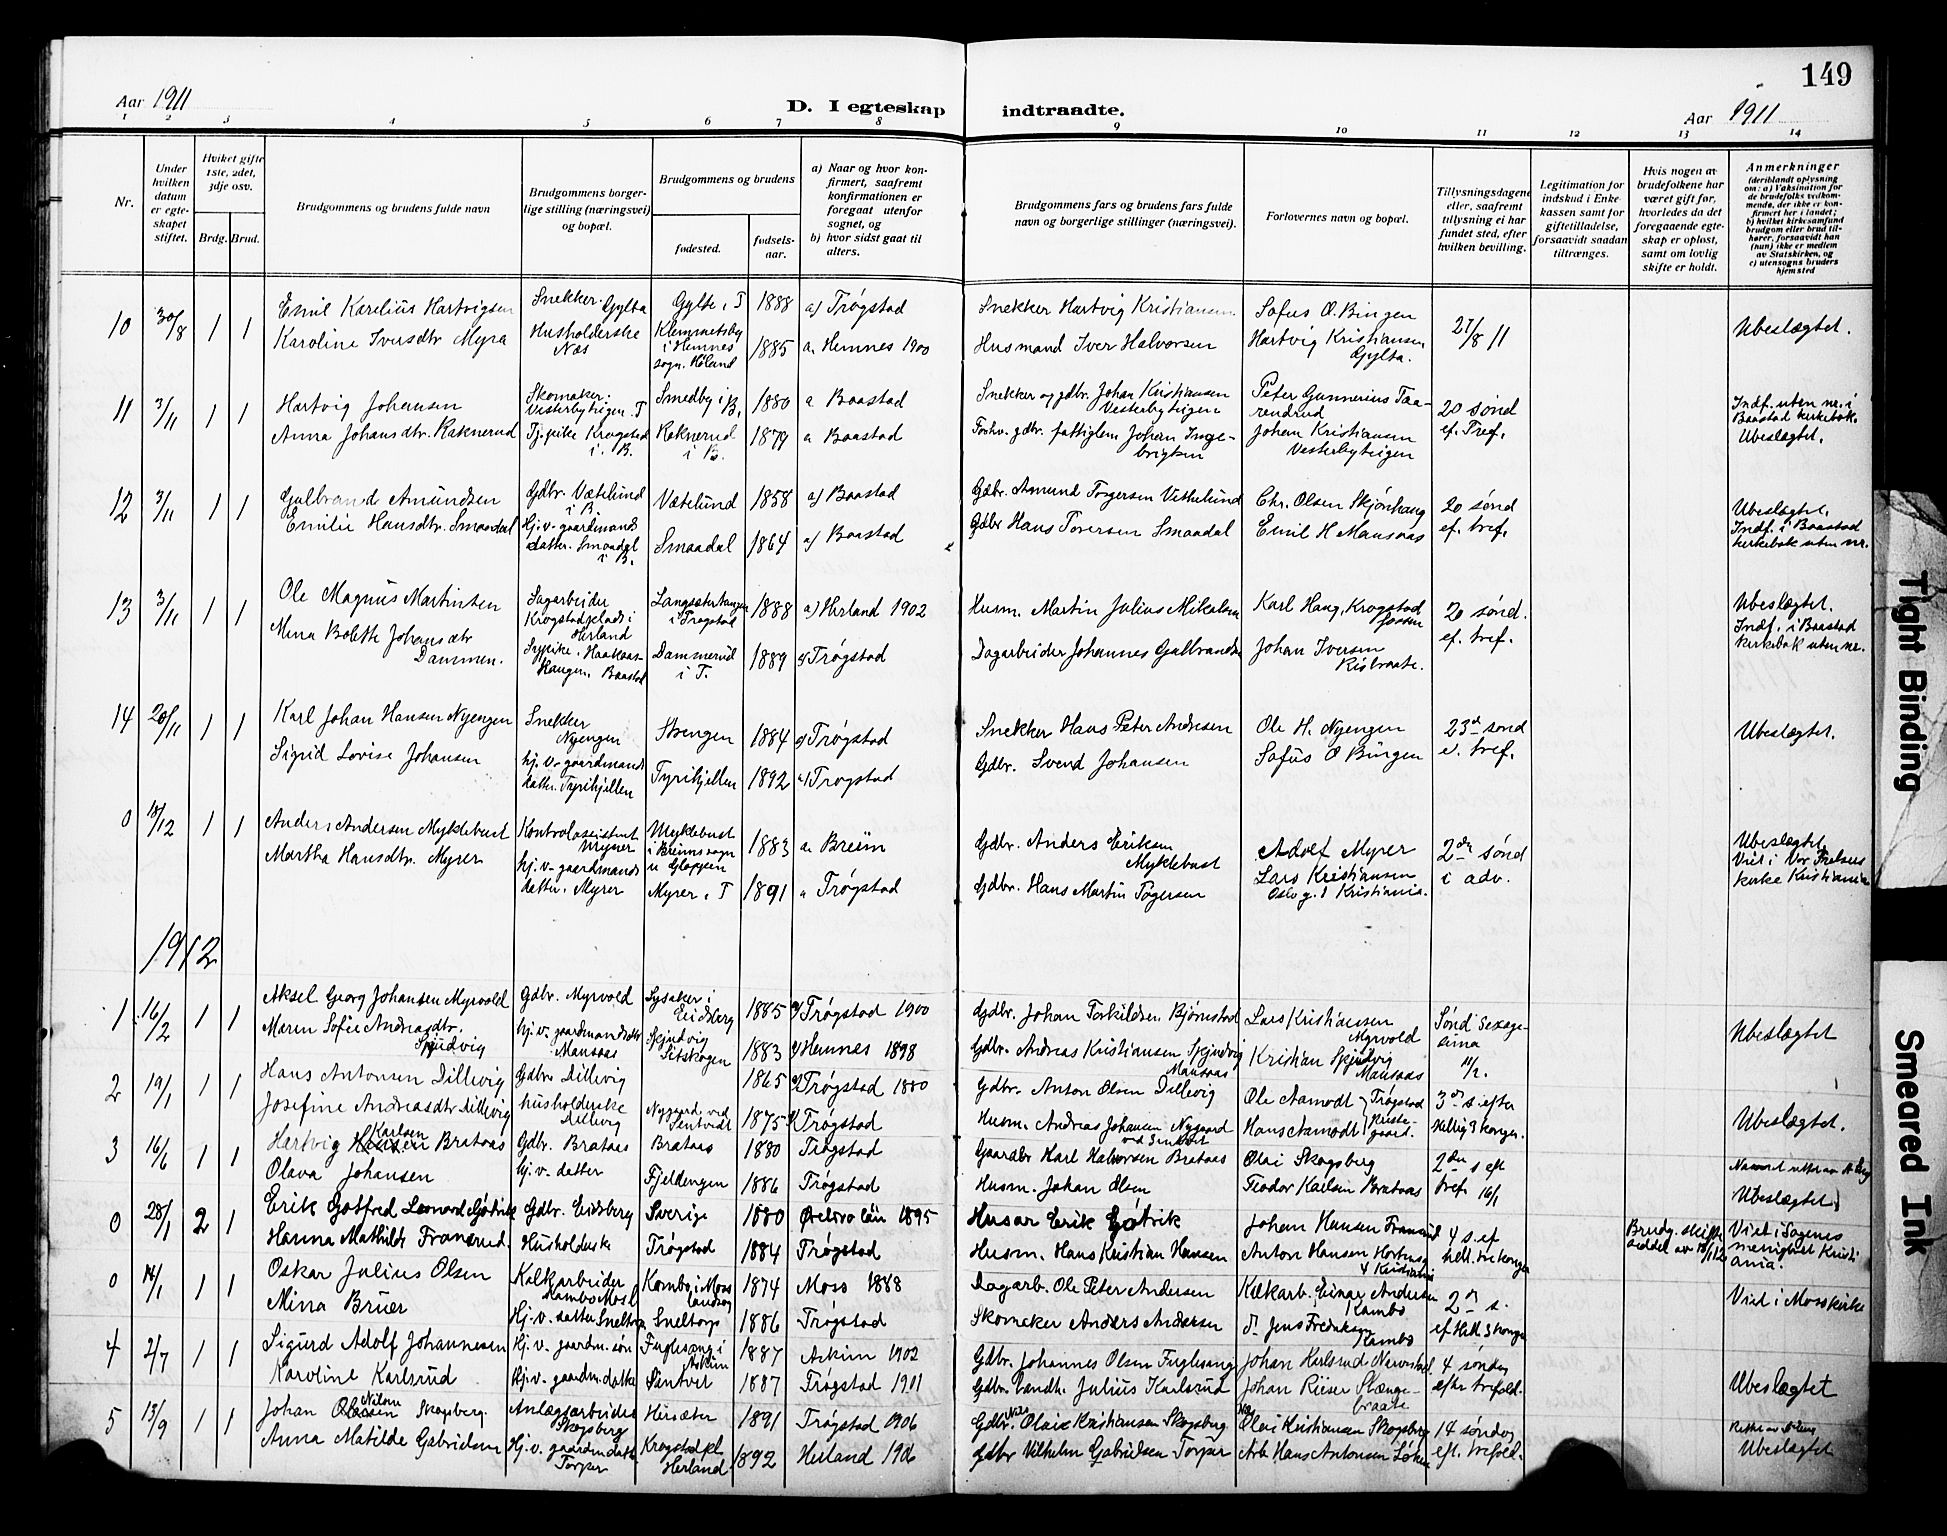 149
Aar 1911
D. I egteskap indtraadte.
Aar 1911
1 2 3 4 5 6 7 8 9 10 11 12 13 14
Nr.
Under hvilken datum er egteskapet stiftet.
Hvilket gifte 1ste, 2det, 3dje osv.
Brdg. Brud.
Brudgommens og brudens fulde navn
Brudgommens borgerlige stilling (næringsvei) og bopæl.
Brudgommens og brudens
fødested.
fødselsaar.
a) Naar og hvor konfirmert, saafremt konfirmationen er foregaat utenfor sognet, og
b) hvor sidst gaat til alters.
Brudgommens fars og brudens fars fulde navn og borgerlige stillinger (næringsvei).
Forlovernes navn og bopæl.
Tillysningsdagene eller, saafremt tillysning ei har fundet sted, efter hvilken bevilling.
Legitimation for indskud i Enkekassen samt for giftetilladelse, forsaavidt saadan tiltrænges.
Hvis nogen av brudefolkene har været gift før, hvorledes da det foregaaende egteskap er opløst, samt om lovlig skifte er holdt.
Anmerkninger
(deriblandt oplysning om: a) Vaksination for de brudefolks vedkommende, der ikke er konfirmert her i landet; b) hvilket kirkesamfund brudgom eller brud tilhører, forsaavidt han (hun) ikke er medlem av Statskirken, og c) utensogns bruders hjemsted
10 30/8 1 1 Emil Karelius Hartvigsen Snekker. Gylta Gylte i T 1888 a) Trøgstad Snekker Hartvig Kristiansen Sofus O. Bingen 27/8 11 Ubeslægtet.
Karoline Iversdtr Myra Husholderske Næs Klemmetsby i Hemnes sogn. Høland 1885 a. Hemnes 1900 Husmand Iver Halvorsen Hartvig Kristiansen Gylta.
11 3/11 1 1 Hartvig Johansen Skomaker: Vesterbytrigen. T Smedby i B. 1880 a Baastad Snekker og gdbr. Johan Kristiansen Vesterbytrigen Peter Gunnerius Taarendrud 20 sønd ef. Tref. Indf. uten nr. i Baastad kirkebok. Ubeslægtet.
Anna Johansdtr. Raknerud Tj. pike Krogstad i B. Raknerud i B. 1879 a Baastad Forhv. gdbr. fattiglem Johan Ingebrigtsen Johan Kristiansen Vesterbytrigen
12 3/11 1 1 Gulbrand Amundsen Gdbr. Vætelund i B. Vætelund 1858 a) Baastad Gdbr. Amund Torgersen Vethelund Chr. Olsen Skjønhaug 20 sønd ef. tref. Ubeslægtet. Indf. i Baastad kirkebok uten nr.
Emilie Hansdtr. Smaadal Hj. v. gaardmands datter. Smaadal i B. Smaadal 1864 a) Baastad Gdbr Hans Toversen Smaadal Emil H Mansaas
13 3/11 1 1 Ole Magnus Martinsen Sagarbeider Krogstadfeldt i Herland Langsætertangen i Trøgstad 1888 a) Herland 1902 Husm. Martin Julius Mikalsen Karl Haug, Krogstadfossen 20 sønd. ef. tref. Ubeslægtet. Indf. i Baastad kirkebok uten nr.
Mina Bolette Johansdtr Dammen. Dammerud i T. 1889 a) Trøgstad Dagarbeider Johannes Gulbrandsen Johan Iversen Risbraate.
14 20/11 1 1 Karl Johan Hansen Nyengen Snekker Nyengen Strengen 1884 a) Trøgstad Snekker Hans Peter Andresen Ole H. Nyengen 23d sønd e. tref. Ubeslægtet.
Sigrid Lovise Johansen hj. v. gaardmands datter. Tyrihjellen Tyrihjellen 1892 a) Trøgstad Gdbr. Svend Johansen Sofus O Bingen
0 18/12 1 1 Anders Andersen Myklebust Kontrolassistent Myrer Myklebust i Breims sogn u Gloppen 1883 a. Breim Gdbr. Anders Eriksen Myklebust Adolf Myrer 2dn sønd i adv. Ubeslægtet Viet i Vor Frelsers kirke Kristiania
Martha Hansdtr. Myrer hj. v. gaardmands datter. Myrer Myrer i T 1891 a Trøgstad Gdbr. Hans Martin Togersen Lars Kristiansen Oslo g. 1 Kristiania.
1912
1 16/2 1 1 Aksel Georg Johansen Myrvold Gdbr. Myrvold Lysaker i Eidsberg 1885 a) Trøgstad 1900 Gdbr. Johan Torkildsen Bjørnstad Lars Kristiansen Myrvold Sønd Sexagesima 11/2. Ubeslægtet
Maren Sofie Andreasdtr. Skjudvig hj. v. gaardmandsdatter Mansaas Skjudvig Sitskogen 1883 a) Hemnes 1898 Gdbr. Andreas Kristiansen Skjudvig Mansaas Kristian Skjudvig Mansaas
2 19/1 1 1 Hans Antonsen Dillevig Gdbr. Dillevig 1865 a) Trøgstad 1880 Gdbr. Anton Olsen Dillevig Ole Aamodt Trøgstad 3dn s. efter Hellig 3 konger. Ubeslægtet.
Josefine Andreasdtr Dillevig husholderske Dillevig Nygaard ved Sentvedt 1875 a) Trøgstad Husm. Andreas Johansen Nygaard ved Sentvet Hans Aamodt Prestegaard.
3 16/6 1 1 Hartvig Karlsen Brataas Gdbr. Brataas Brataas 1880 Trøgstad Gaardbr Karl Halvorsen Brataas Olai Skogsberg 2den s eft tref 16/1
Olava Johansen hj. v. datter Fjeldengen 1886 Trøgstad Husm. Johan Olsen Teodor Karlsen Brataas Ubeslægtet
0 28/1 2 1 Erik Gotfred Leonard Gøtrik Gdbr. Eidsberg Sverige 1880 Ørebro län 1895 Husar Erik Gøtrik Johan Hansen Fransrud 4 s. ef hell. tre konger Brudg. skifteseddel av Viet i Sagenes menighet Kristiania.
Hanna Mathilde Fransrud. Husholderske Trøgstad 1884 Trøgstad Husm. Hans Kristian Hansen Anton Hansen
0 14/1 1 1 Oskar Julius Olsen Kalkarbeider Kambo Moss Kambo i Moss landsogn 1874 Moss 1888 Dagarb. Ole Peter Andersen Kalkarb. Einar Andersen Kambo 2dn s. ef Hell 3 konger Viet i Moss kirke
Mina Bruer Hj. v. datter Sneltorp Sneltorp 1886 Trøgstad Skomaker Anders Andersen do Jens Fredriksen Kambo
4 2/7 1 1 Sigurd Adolf Johannesen Hj. v. gaardm. søn Fuglesang i Askim 1887 Askim 1902 Gdbr. Johannes Olsen Fuglesang Johan Karlsrud 4 søndag efter trefold. Ubeslægtet
Karoline Karlsrud Hj. v. gaardm. datter Sentvet 1887 Trøgstad 1901 Gdbr. Landh. Julius Karlsrud Johan Riiser Stangebraate
5 13/9 1 1 Johan Nilsen Skogsberg. Anlægsarbeider Skogsberg Hersæter 1891 Trøgstad 1906 Gdbr. Nils Olai Kristiansen Skogsberg Olai Kristiansen Skogsberg 14 søndag eft. trefold. Ubeslægtet
Anna Matilde Gabrielsen Hj. v. gaardm. datter Torper Krogstadfl. Herland 1892 Herland 1906 Gdbr Vilhelm Gabrielsen Torper Arb. Hans Antonsen Løken
Tight Binding
Smeared Ink